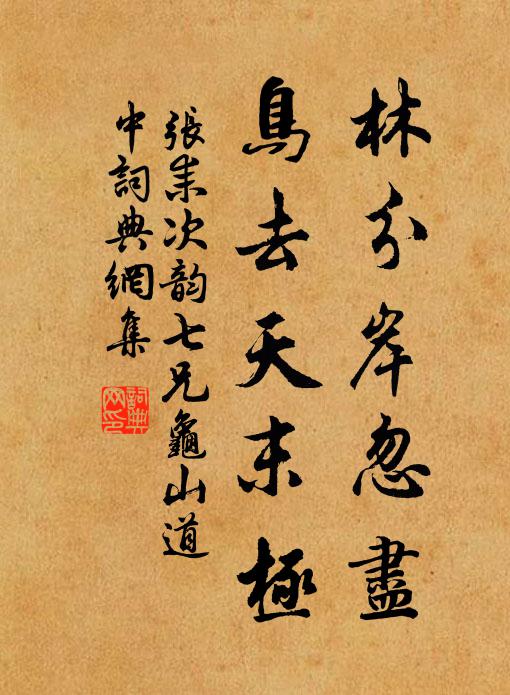 林分岸忽盡
鳥去天末極
張耒次韵七兄龜山道
中詞典網集
詞典
网印